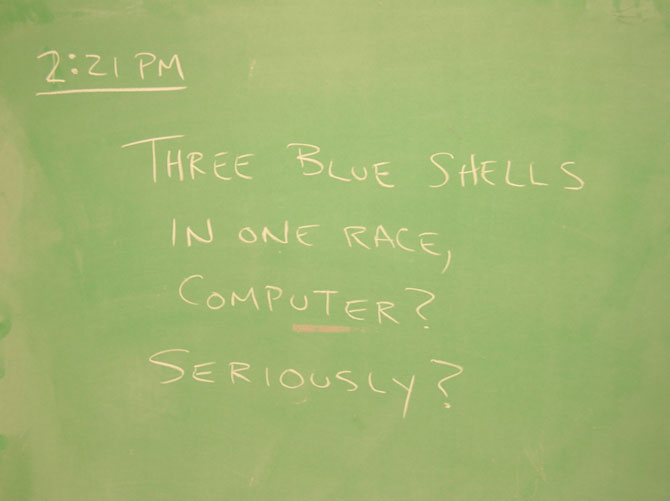 2:21 PM
THREE BLUE SHELLS
IN ONE RACE,
COMPUTER?
SERIOUSLY?